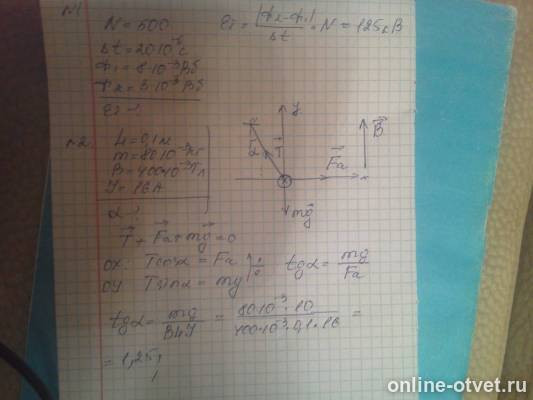 N1
N = 500
Δt = 20·10⁻⁶ c
Ф₁ = 8·10⁻³ Вб
Ф₂ = 3·10⁻³ Вб
Ei - ?
Ei = |Ф₂-Ф₁| / Δt · N = 125 кВ
N2.
L = 0,1 м
m = 80·10⁻³ кг
B = 400·10⁻³ Тл
I = 16 A
α - ?
y
T
α
Fa
B
x
mg
T + Fa + mg = 0
OX: Tcosα = Fa
OY: Tsinα = mg
tgα = mg / Fa
tgα = mg / BLI = 80·10⁻³·10 / 400·10⁻³·0,1·16 =
= 1,25;
online-otvet.ru